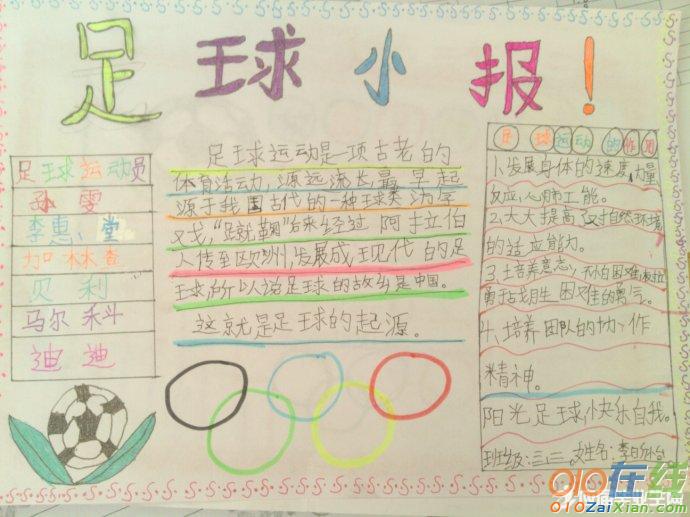 足球小报!
足球运动员
孙雯
李惠堂
加林查
贝利
马尔蒂斗
迪迪
足球运动是一项古老的
体育活动,源远流长最早起
源于我国古代的一种球类游
戏,“蹴鞠”后来经过阿拉伯
人传至欧州,发展成现代的足
球,所以说足球的故乡是中国。
这就是足球的起源。
足球运动的作用
1.发展身体的速度,力量
反应,心肺工能。
2.大大提高对自然环境
的适应能力。
3.培养意志,不怕困难
勇于战胜困难的勇气。
4.培养团队的协作
精神。
阳光足球,快乐自我。
班级:三、三 姓名:李
010在线
010ZaiXian.com